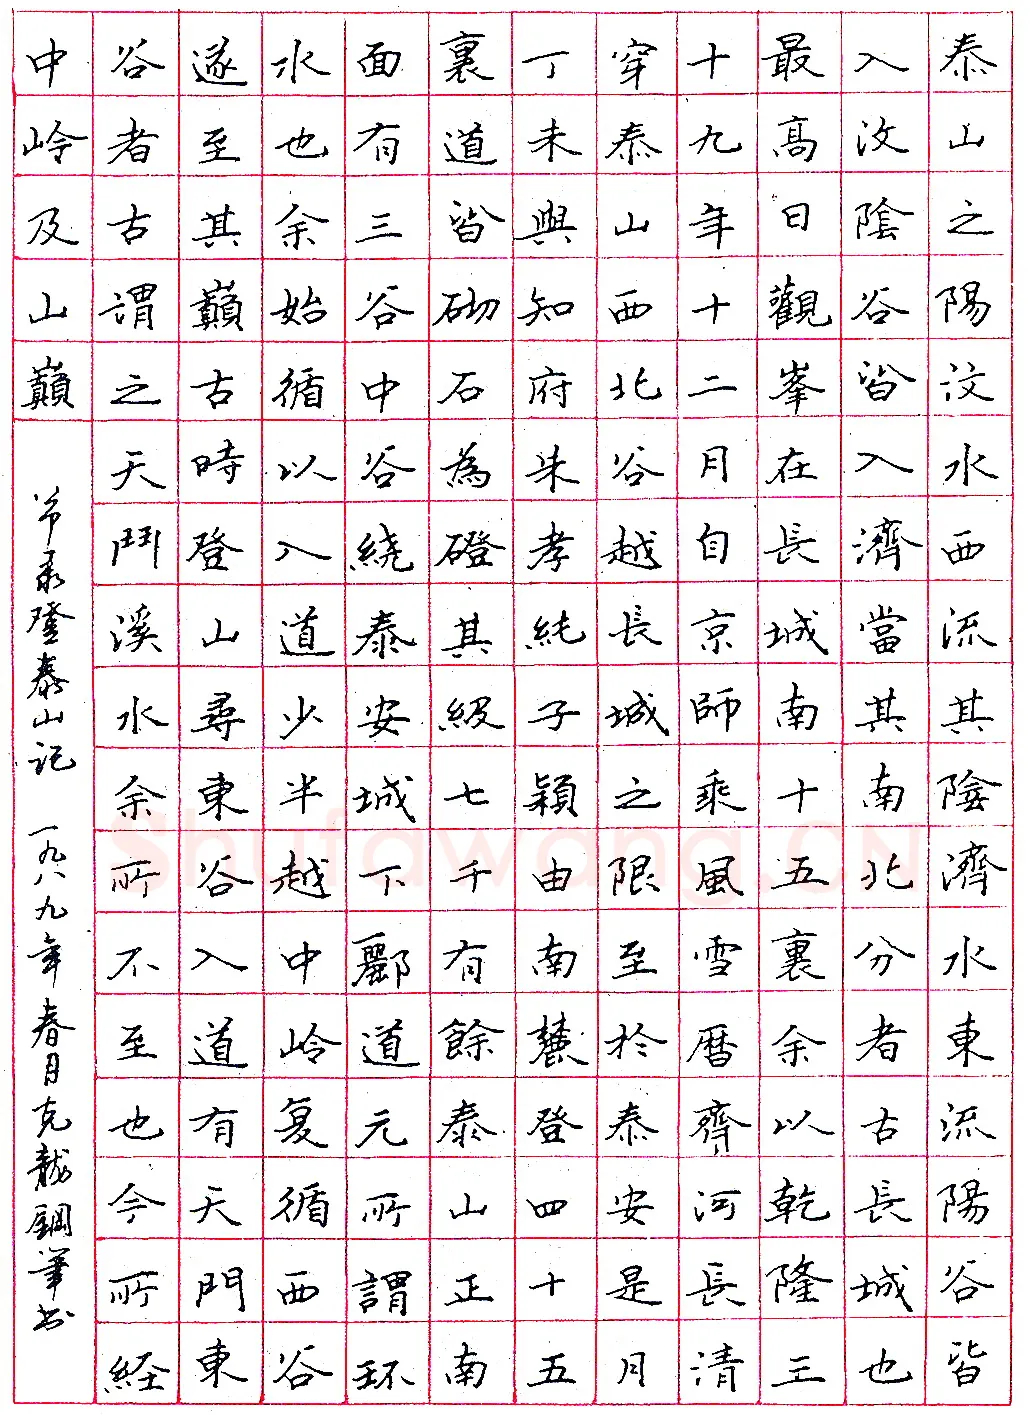 泰山之陽汶水西流其陰濟水東流陽谷皆
入汶陰谷皆入濟當其南北分者古長城也
最高日觀峯在長城南十五裏余以乾隆三
十九年十二月自京師乘風雪暦齊河長清
穿泰山西北谷越長城之限至於泰安是月
丁未與知府朱孝純子穎由南麓登四十五
裏道皆砌石為磴其級七千有餘泰山正南
面有三谷中谷繞泰安城下酈道元所謂环
水也余始循以入道少半越中岭复循西谷
遂至其巔古時登山尋東谷入道有天門東
谷者古謂之天門溪水余所不至也今所經
中岭及山巔
节录登泰山记 一九八九年春月克龍鋼筆书
Shufawang.CN